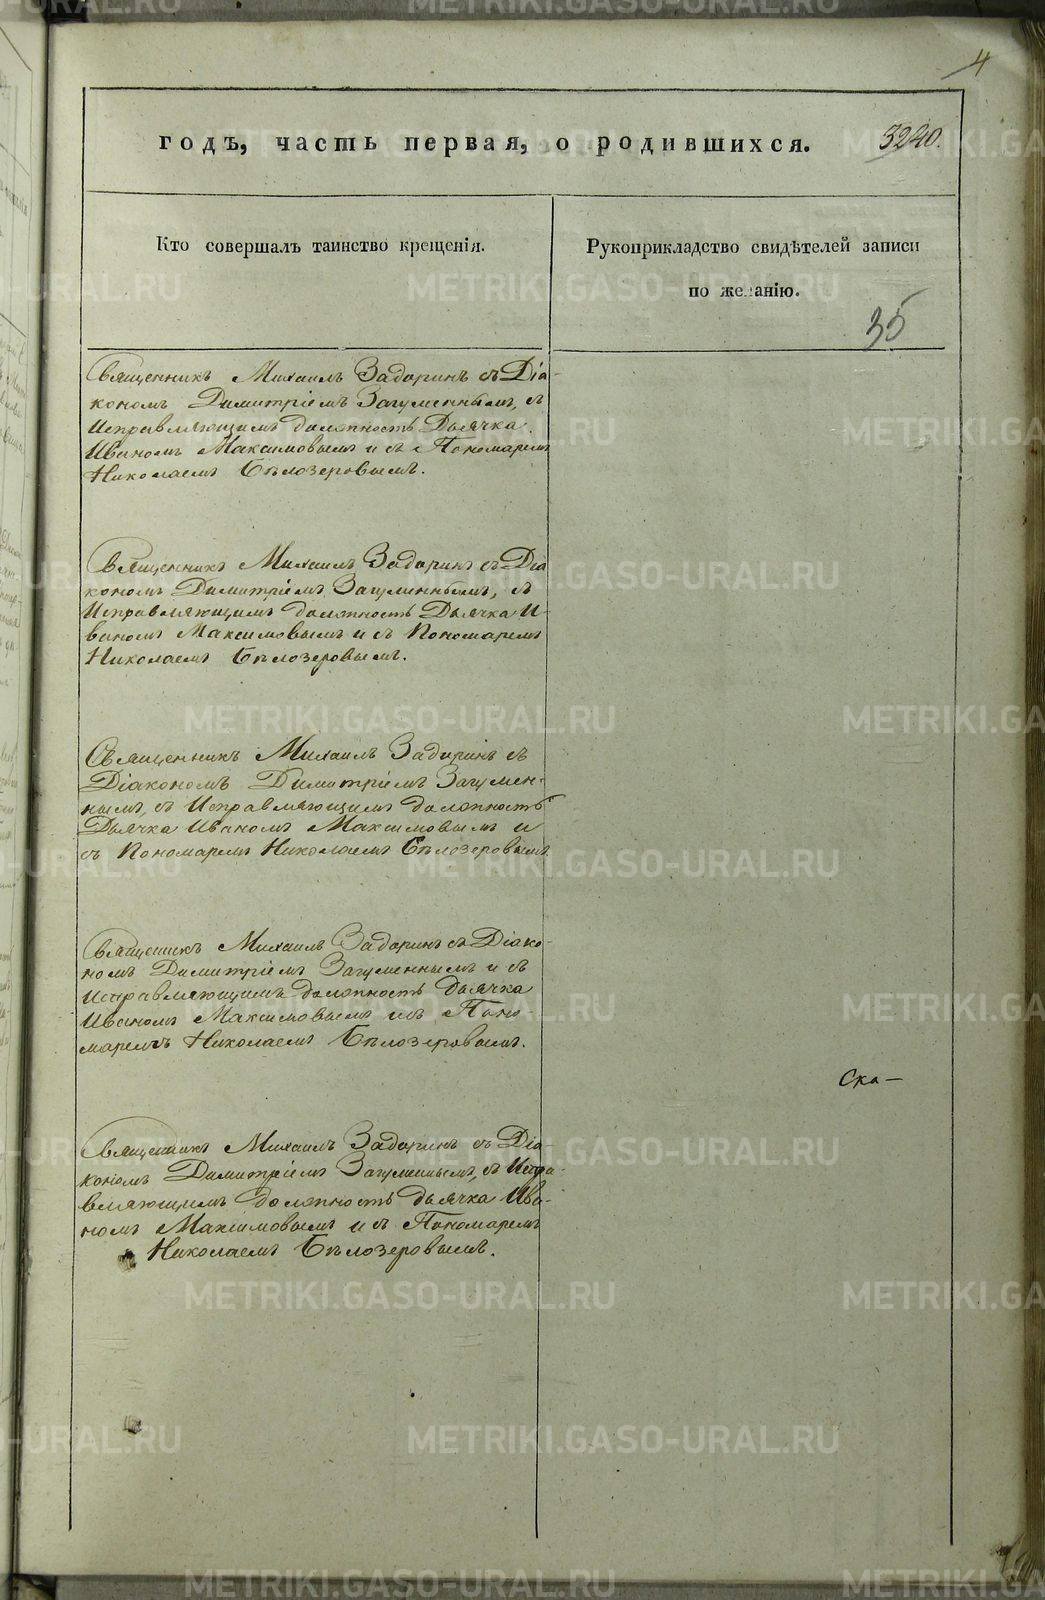 4
годъ, часть первая, о родившихся. 3240.
Кто совершалъ таинство крещенія.
Рукоприкладство свидѣтелей записи
по желанію.
35
Священникъ Михаилъ Задоринъ съ Діа-
кономъ Димитріемъ Загуменнымъ, съ
Исправляющимъ должность Дьячка
Иваномъ Максимовымъ и съ Пономаремъ
Николаемъ Бѣлозеровымъ.
Священникъ Михаилъ Задоринъ съ Діа
кономъ Димитріемъ Загуменнымъ, съ
Исправляющимъ должность Дьячка И-
ваномъ Максимовымъ и съ Пономаремъ
Николаемъ Бѣлозеровымъ.
Священникъ Михаилъ Задоринъ съ
Діакономъ Димитріемъ Загумен-
нымъ, съ Исправляющимъ должность
Дьячка Иваномъ Максимовымъ и
съ Пономаремъ Николаемъ Бѣлозеровымъ.
Священникъ Михаилъ Задоринъ съ Діако-
номъ Димитріемъ Загуменнымъ и съ
Исправляющимъ должность дьячка
Иваномъ Максимовымъ и съ Поно
маремъ Николаемъ Бѣлозеровымъ.
Ска-
Священникъ Михаилъ Задоринъ съ Діа
кономъ Димитріемъ Загуменнымъ, съ Испра-
вляющимъ должность дьячка Ива-
номъ Максимовымъ и съ Пономаремъ
Николаемъ Бѣлозеровымъ.
METRIKI.GASO-URAL.RU